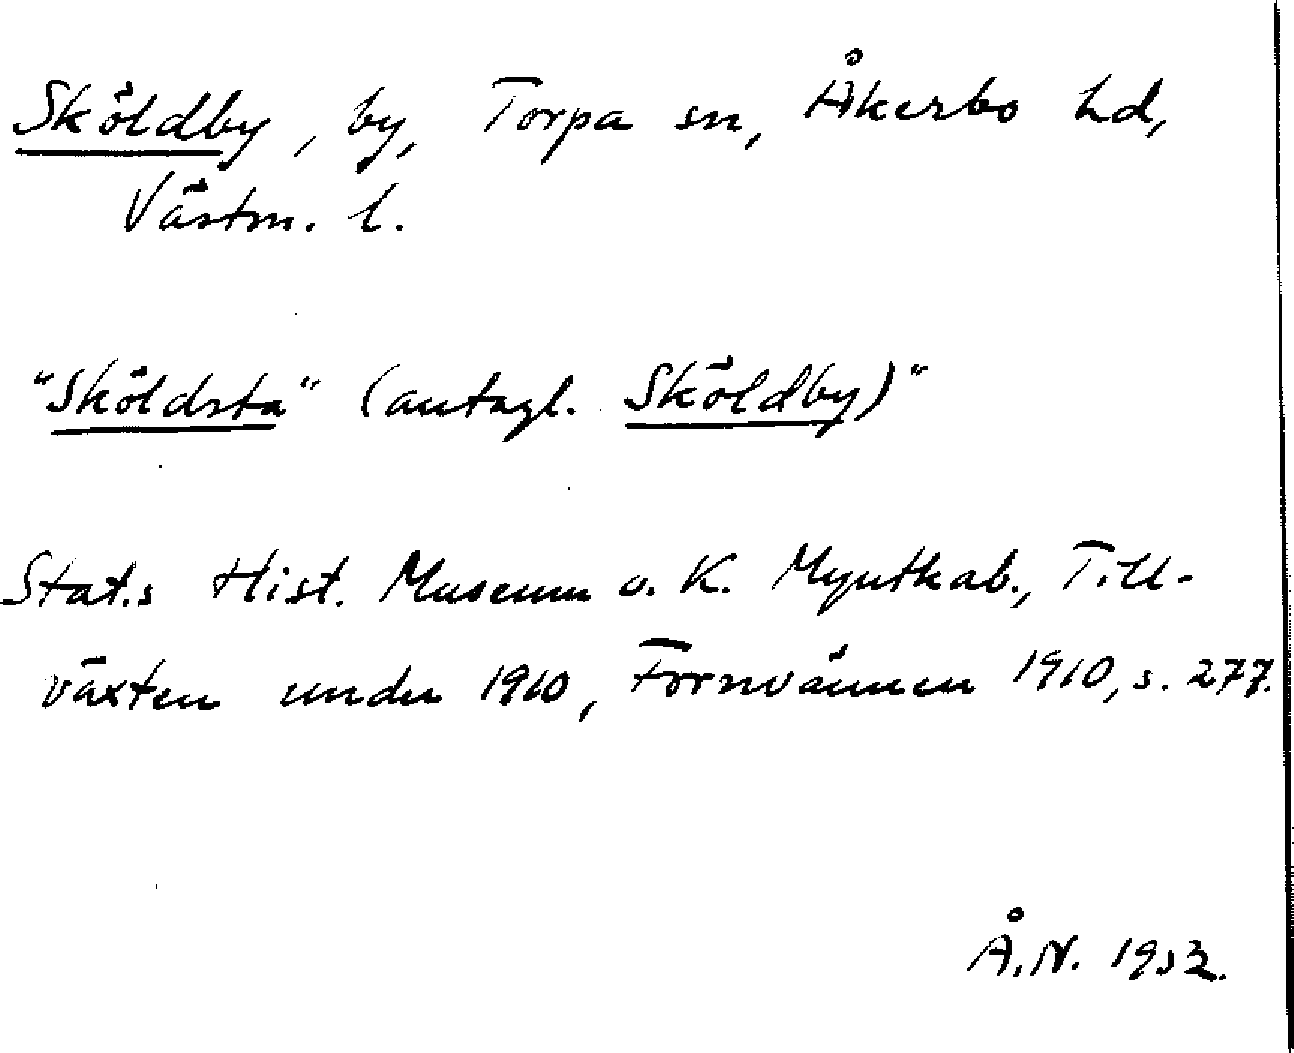 Sköldby, by, Torpa sn, Åkerbo hd,
Västm. l.
"Sköldsta" (antagl. Sköldby)"
Stat:s Hist. Museum o. K. Myntkab., Till-
växten under 1910, Fornvännen 1910, s. 277.
Å.N. 1932.